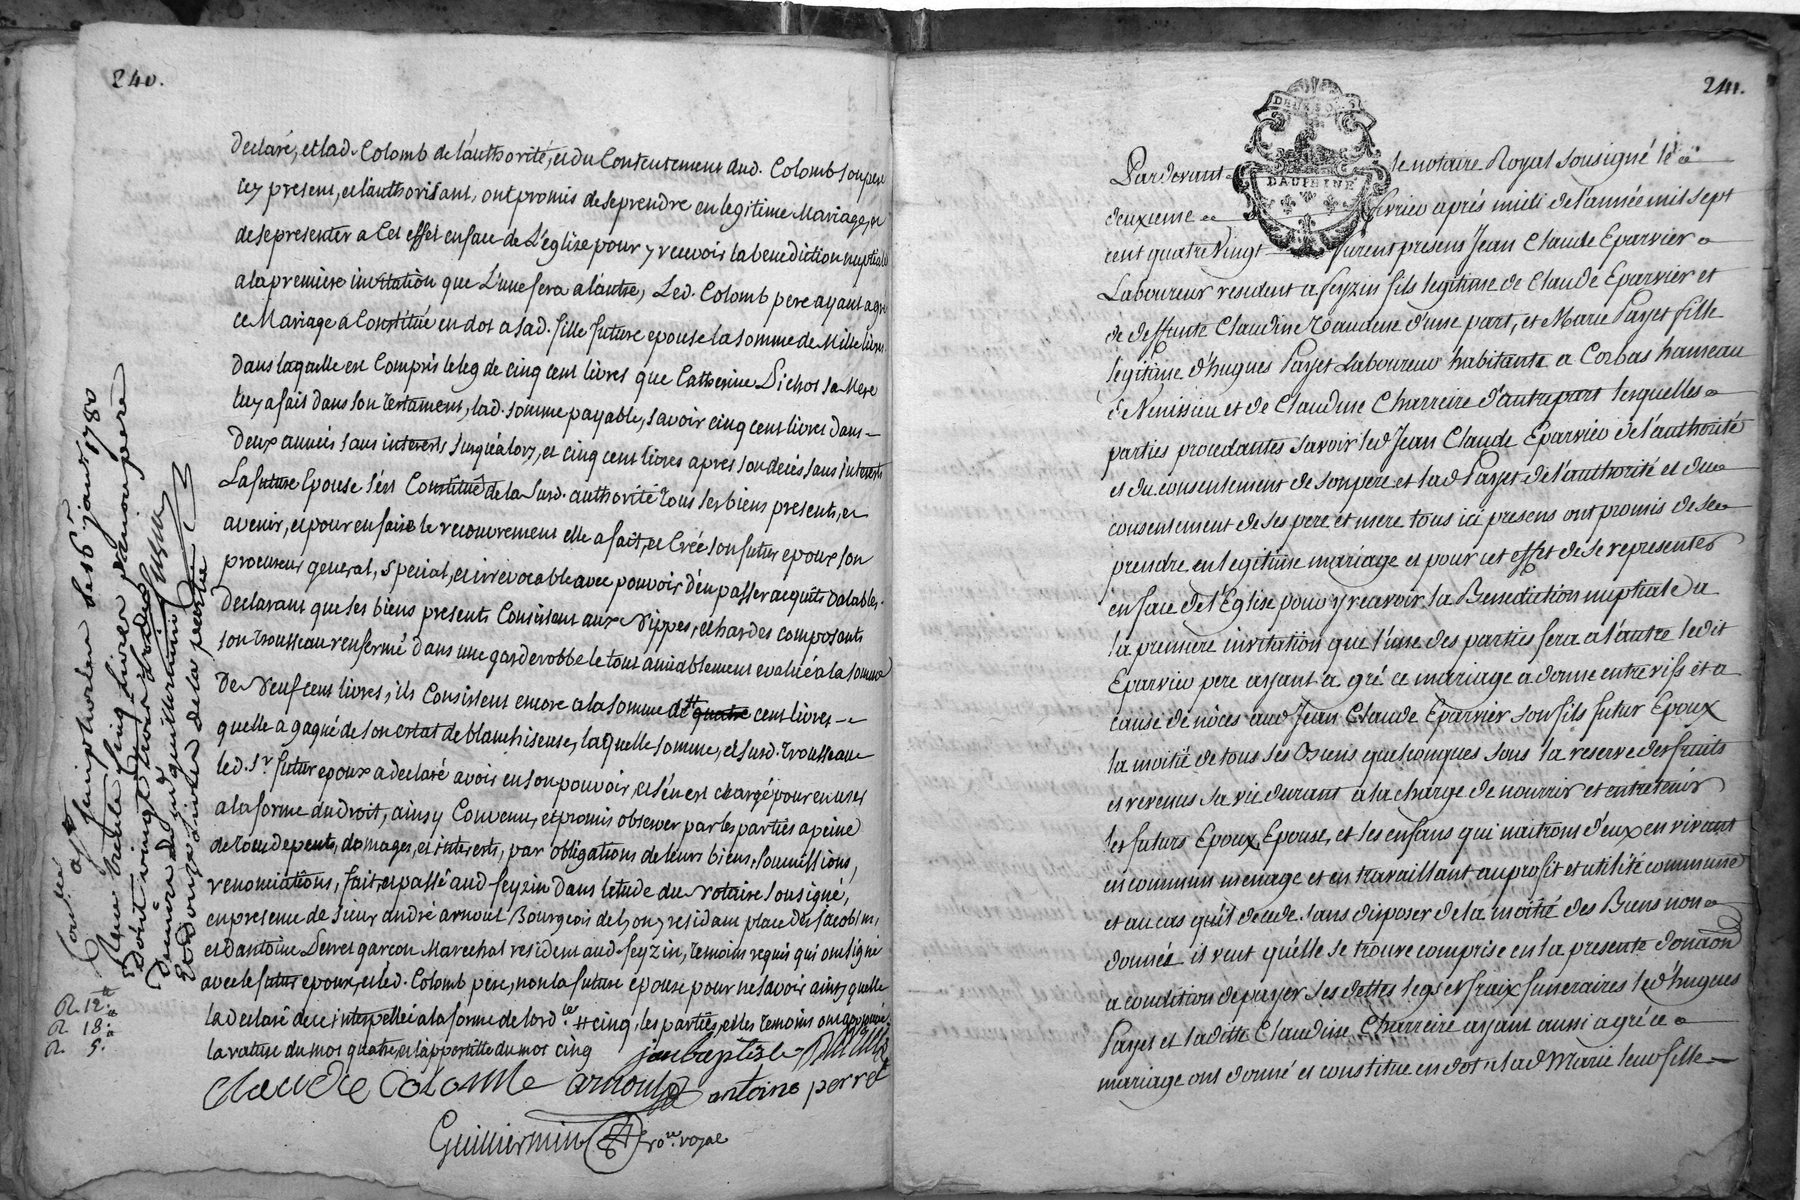 240.
declaré, et lad. Colomb de l'authorité, et du Consentement dud. Colomb son pere
icy present, et l'authorisant, ont promis de se prendre en legitime Mariage, et
de se presenter a Cet effet en face de L'église pour y recevoir la benediction nuptiale
a la premiere invitation que L'une fera a l'autre, Led. Colomb pere ayant agré
ce Mariage a Constitué en dot a sad. fille future epouse la somme de Mille livres
dans laquelle est Compris le leg de cinq cent livres que Catherine Pichot sa Mere
luy a fait dans son testament, lad. somme payable, savoir cinq cent livres dans
deux années sans interests jusqu'alors, et cinq cent livres apres son decés sans interests
La future Epouse s'est Constitué de la susd. authorité tous ses biens presents, et
avenir, et pour en faire le recouvrement elle a fait, et Créé son futur epoux son
procureur general, special, et irrevocable avec pouvoir d'en passer acquits valables.
declarant que ses biens presents Consistent aux Nippes, et hardes composants
son trousseau renfermé dans une garderobbe le tout amiablement evalué a la somme
De Neuf cent livres, ils Consistent encore a la somme de # quatre cent livres
quelle a gagné de son estat de blanchiseuse, laquelle somme, et susd. trousseau
led. sr. futur epoux a declaré avoir en son pouvoir, et s'en est chargé pour en user
a la forme du droit, ainsy Convenu, et promis observer par les parties a peine
de tous depents, domages, et interests, par obligations de leurs biens, soumissions,
renonciations, fait, et passé aud. feyzin dans letude du Notaire sousigné,
en presence de sieur andré arnoul Bourgeois de Lyon y residant place des Jacobins,
et d'antoine Perret garçon Marechal resident aud. feyzin, temoins requis qui ont signé
avec le futur epoux, et led. Colomb pere, non la future epouse pour ne savoir ainsy quelle
la declaré de ce interpellée a la forme de lord.ce # cinq, les parties, et les temoins ont approuvé
la rature du mot quatre, et l'appostille du mot cinq jean baptiste
Claude Colomb arnoul antoine perret
Guilliermin no.re royal
Controllé a st simphorien le 6 janv 1780
R. 12.
R. 18.
R. 5.
241.
DEUX SOLS
DAUPHINE
Pardevant le notaire Royal sousigné le
deuxieme fevrier aprés midi de l'année mil sept
cent quatre vingt furent presens Jean Claude Eparvier
Laboureur resident a feyzin fils legitime de Claude Eparvier et
de deffunte Claudine d'une part, et Marie Payet fille
legitime d'hugues Payet Laboureur habitante a Corbas hameau
de Venissieu et de Claudine Charreire d'autre part lesquelles
parties procedantes savoir led Jean Claude Eparvier de l'authorité
et du consentement de son pere et lad Payet de l'authorité et du
consentement de ses pere et mere tous ici presens ont promis de se
prendre en legitime mariage et pour cet effet de se representer
en face de l'Eglise pour y recevoir la Benediction nuptiale a
la premiere invitation que l'une des parties fera a l'autre ledit
Eparvier pere ayant a gré ce mariage a donné entre vifs et a
cause de nôces aud Jean Claude Eparvier son fils futur Epoux
la moitié de tous ses Biens quelconques sous la reserve des fruits
et revenus sa vie durant a la charge de nourrir et entretenir
les futurs Epoux, Epouse, et les enfans qui naitrons d'eux en vivant
en commun menage et en travaillant au profit et utilité commune
et au cas qu'il decede sans disposer de la moitié des Biens non
donnée il veut qu'elle se trouve comprise en la presente donaôn
a condition de payer ses dettes legs et fraix funeraires led hugues
Payet et ladite Claudine Charreire ayant aussi a gré ce
mariage ont donné et constitué en dot a lad Marie leur fille